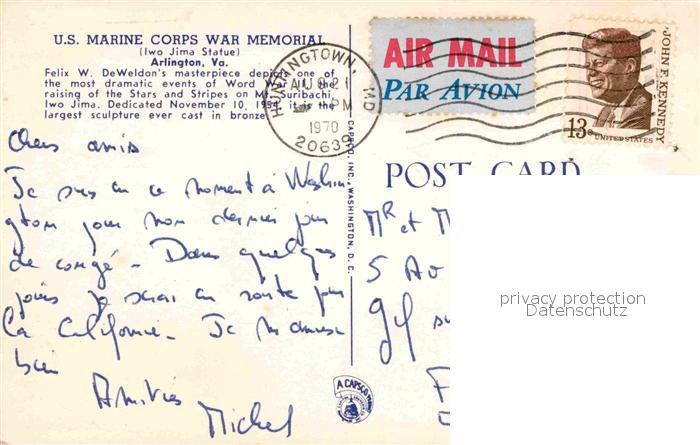 U.S. MARINE CORPS WAR MEMORIAL
(Iwo Jima Statue)
Arlington, Va.
Felix W. DeWeldon's masterpiece depicts one of
the most dramatic events of Word War II, the
raising of the Stars and Stripes on Mt. Suribachi,
Iwo Jima. Dedicated November 10, 1954, it is the
largest sculpture ever cast in bronze.
HUNTINGTOWN, MD
AUG 21
PM
1970
20639
AIR MAIL
PAR AVION
JOHN F. KENNEDY
13c UNITED STATES
CAPSCO, INC., WASHINGTON, D. C.
POST CARD
Chers amis
Je suis en ce moment à Washin
gton pour mon dernier jour
de congé - Dans quelques
jours je serai en route pour
la Californie. Je m'amuse
bien
Amitiés
Michel
Mr et M
5 Av
Gif su
F
A CAPSCO
privacy protection
Datenschutz